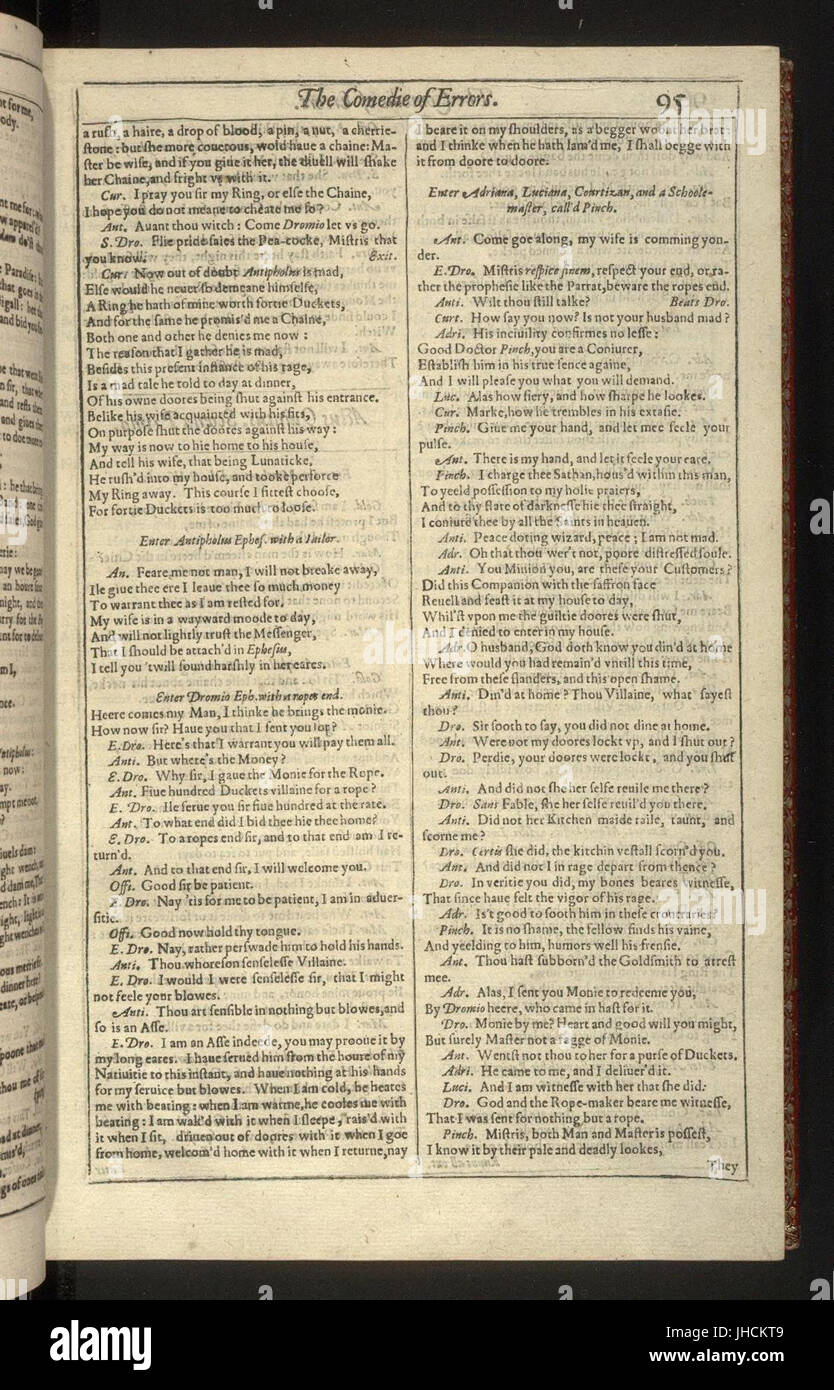 The Comedie of Errors.
95
a ruſh, a haire, a drop of blood, a pin, a nut, a cherrie-
ſtone: but ſhe more couetous, wold haue a chaine: Ma-
ſter be wiſe, and if you giue it her, the diuell will ſhake
her Chaine, and fright vs with it.
Cur. I pray you ſir my Ring, or elſe the Chaine,
I hope you do not meane to cheate me ſo?
Ant. Auant thou witch: Come Dromio let vs go.
S. Dro. Flie pride ſaies the Pea-cocke, Miſtris that
you know. Exit.
Cur. Now out of doubt Antipholus is mad,
Elſe would he neuer ſo demeane himſelfe,
A Ring he hath of mine worth fortie Duckets,
And for the ſame he promis'd me a Chaine,
Both one and other he denies me now:
The reaſon that I gather he is mad,
Beſides this preſent inſtance of his rage,
Is a mad tale he told to day at dinner,
Of his owne doores being ſhut againſt his entrance.
Belike his wife acquainted with his fits,
On purpoſe ſhut the doores againſt his way:
My way is now to hie home to his houſe,
And tell his wife, that being Lunaticke,
He ruſh'd into my houſe, and tooke perforce
My Ring away. This courſe I fitteſt chooſe,
For fortie Duckets is too much to looſe.
Enter Antipholus Epheſ. with a Iailor.
An. Feare me not man, I will not breake away,
Ile giue thee ere I leaue thee ſo much money
To warrant thee as I am reſted for.
My wife is in a wayward moode to day,
And will not lightly truſt the Meſſenger,
That I ſhould be attach'd in Epheſus,
I tell you 'twill ſound harſhly in her eares.
Enter Dromio Eph. with a ropes end.
Heere comes my Man, I thinke he brings the monie.
How now ſir? Haue you that I ſent you for?
E. Dro. Here's that I warrant you will pay them all.
Anti. But where's the Money?
E. Dro. Why ſir, I gaue the Monie for the Rope.
Ant. Fiue hundred Duckets villaine for a rope?
E. Dro. Ile ſerue you ſir fiue hundred at the rate.
Ant. To what end did I bid thee hie thee home?
E. Dro. To a ropes end ſir, and to that end am I re-
turn'd.
Ant. And to that end ſir, I will welcome you.
Offi. Good ſir be patient.
E. Dro. Nay 'tis for me to be patient, I am in aduer-
ſitie.
Offi. Good now hold thy tongue.
E. Dro. Nay, rather perſwade him to hold his hands.
Anti. Thou whoreſon ſenſeleſſe Villaine.
E. Dro. I would I were ſenſeleſſe ſir, that I might
not feele your blowes.
Anti. Thou art ſenſible in nothing but blowes, and
ſo is an Aſſe.
E. Dro. I am an Aſſe indeede, you may prooue it by
my long eares. I haue ſerued him from the houre of my
Natiuitie to this inſtant, and haue nothing at his hands
for my ſeruice but blowes. When I am cold, he heates
me with beating: when I am warme, he cooles me with
beating: I am wak'd with it when I ſleepe, rais'd with
it when I ſit, driuen out of doores with it when I goe
from home, welcom'd home with it when I returne, nay
I beare it on my ſhoulders, as a begger woont her brat:
and I thinke when he hath lam'd me, I ſhall begge with
it from doore to doore.
Enter Adriana, Luciana, Courtizan, and a Schoole-
maſter, call'd Pinch.
Ant. Come goe along, my wife is comming yon-
der.
E. Dro. Miſtris reſpice finem, reſpect your end, or ra-
ther the propheſie like the Parrat, beware the ropes end.
Anti. Wilt thou ſtill talke? Beats Dro.
Curt. How ſay you now? Is not your husband mad?
Adri. His inciuility confirmes no leſſe:
Good Doctor Pinch, you are a Coniurer,
Eſtabliſh him in his true ſence againe,
And I will pleaſe you what you will demand.
Luc. Alas how fiery, and how ſharpe he lookes.
Cur. Marke, how he trembles in his extaſie.
Pinch. Giue me your hand, and let mee feele your
pulſe.
Ant. There is my hand, and let it feele your eare.
Pinch. I charge thee Sathan, hous'd within this man,
To yeeld poſſeſſion to my holie praiers,
And to thy ſtate of darkneſſe hie thee ſtraight,
I coniure thee by all the Saints in heauen.
Anti. Peace doting wizard, peace; I am not mad.
Adr. Oh that thou wer't not, poore diſtreſſed ſoule.
Anti. You Minion you, are theſe your Cuſtomers?
Did this Companion with the ſaffron face
Reuell and feaſt it at my houſe to day,
Whil'ſt vpon me the guiltie doores were ſhut,
And I denied to enter in my houſe.
Adr. O husband, God doth know you din'd at home
Where would you had remain'd vntill this time,
Free from theſe ſlanders, and this open ſhame.
Anti. Din'd at home? Thou Villaine, what ſayeſt
thou?
Dro. Sir ſooth to ſay, you did not dine at home.
Ant. Were not my doores lockt vp, and I ſhut out?
Dro. Perdie, your doores were lockt, and you ſhut
out.
Anti. And did not ſhe her ſelfe reuile me there?
Dro. Sans Fable, ſhe her ſelfe reuil'd you there.
Anti. Did not her Kitchen maide raile, taunt, and
ſcorne me?
Dro. Certis ſhe did, the kitchin veſtall ſcorn'd you.
Ant. And did not I in rage depart from thence?
Dro. In veritie you did, my bones beares witneſſe,
That ſince haue felt the vigor of his rage.
Adr. Is't good to ſooth him in theſe crontraries?
Pinch. It is no ſhame, the fellow finds his vaine,
And yeelding to him, humors well his frenſie.
Ant. Thou haſt ſubborn'd the Goldſmith to arreſt
mee.
Adr. Alas, I ſent you Monie to redeeme you,
By Dromio heere, who came in haſt for it.
Dro. Monie by me? Heart and good will you might,
But ſurely Maſter not a ragge of Monie.
Ant. Wentſt not thou to her for a purſe of Duckets.
Adri. He came to me, and I deliuer'd it.
Luci. And I am witneſſe with her that ſhe did:
Dro. God and the Rope-maker beare me witneſſe,
That I was ſent for nothing but a rope.
Pinch. Miſtris, both Man and Maſter is poſſeſt,
I know it by their pale and deadly lookes,
They
alamy
Image ID: JHCKT9
www.alamy.com